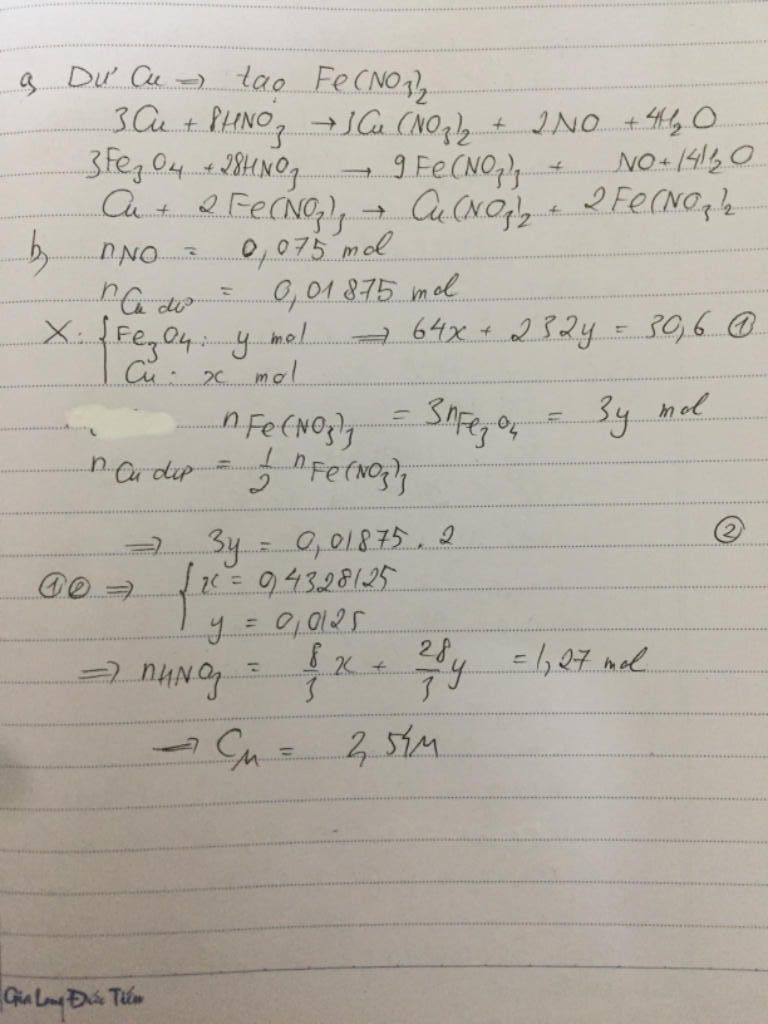 a, Dư Cu => tạo Fe(NO₃)₂
3Cu + 8HNO₃ → 3Cu(NO₃)₂ + 2NO + 4H₂O
3Fe₃O₄ + 28HNO₃ → 9Fe(NO₃)₃ + NO + 14H₂O
Cu + 2Fe(NO₃)₃ → Cu(NO₃)₂ + 2Fe(NO₃)₂
b, nNO = 0,075 mol
nCu dư = 0,01875 mol
X: { Fe₃O₄: y mol => 64x + 232y = 30,6 ①
Cu: x mol
nFe(NO₃)₃ = 3nFe₃O₄ = 3y mol
nCu dư = 1/2 nFe(NO₃)₃
=> 3y = 0,01875 . 2 ②
①② => { x = 0,4328125
y = 0,0125
=> nHNO₃ = 8/3 x + 28/3 y = 1,27 mol
=> CM = 2,54M
Gia Long Đức Tiến